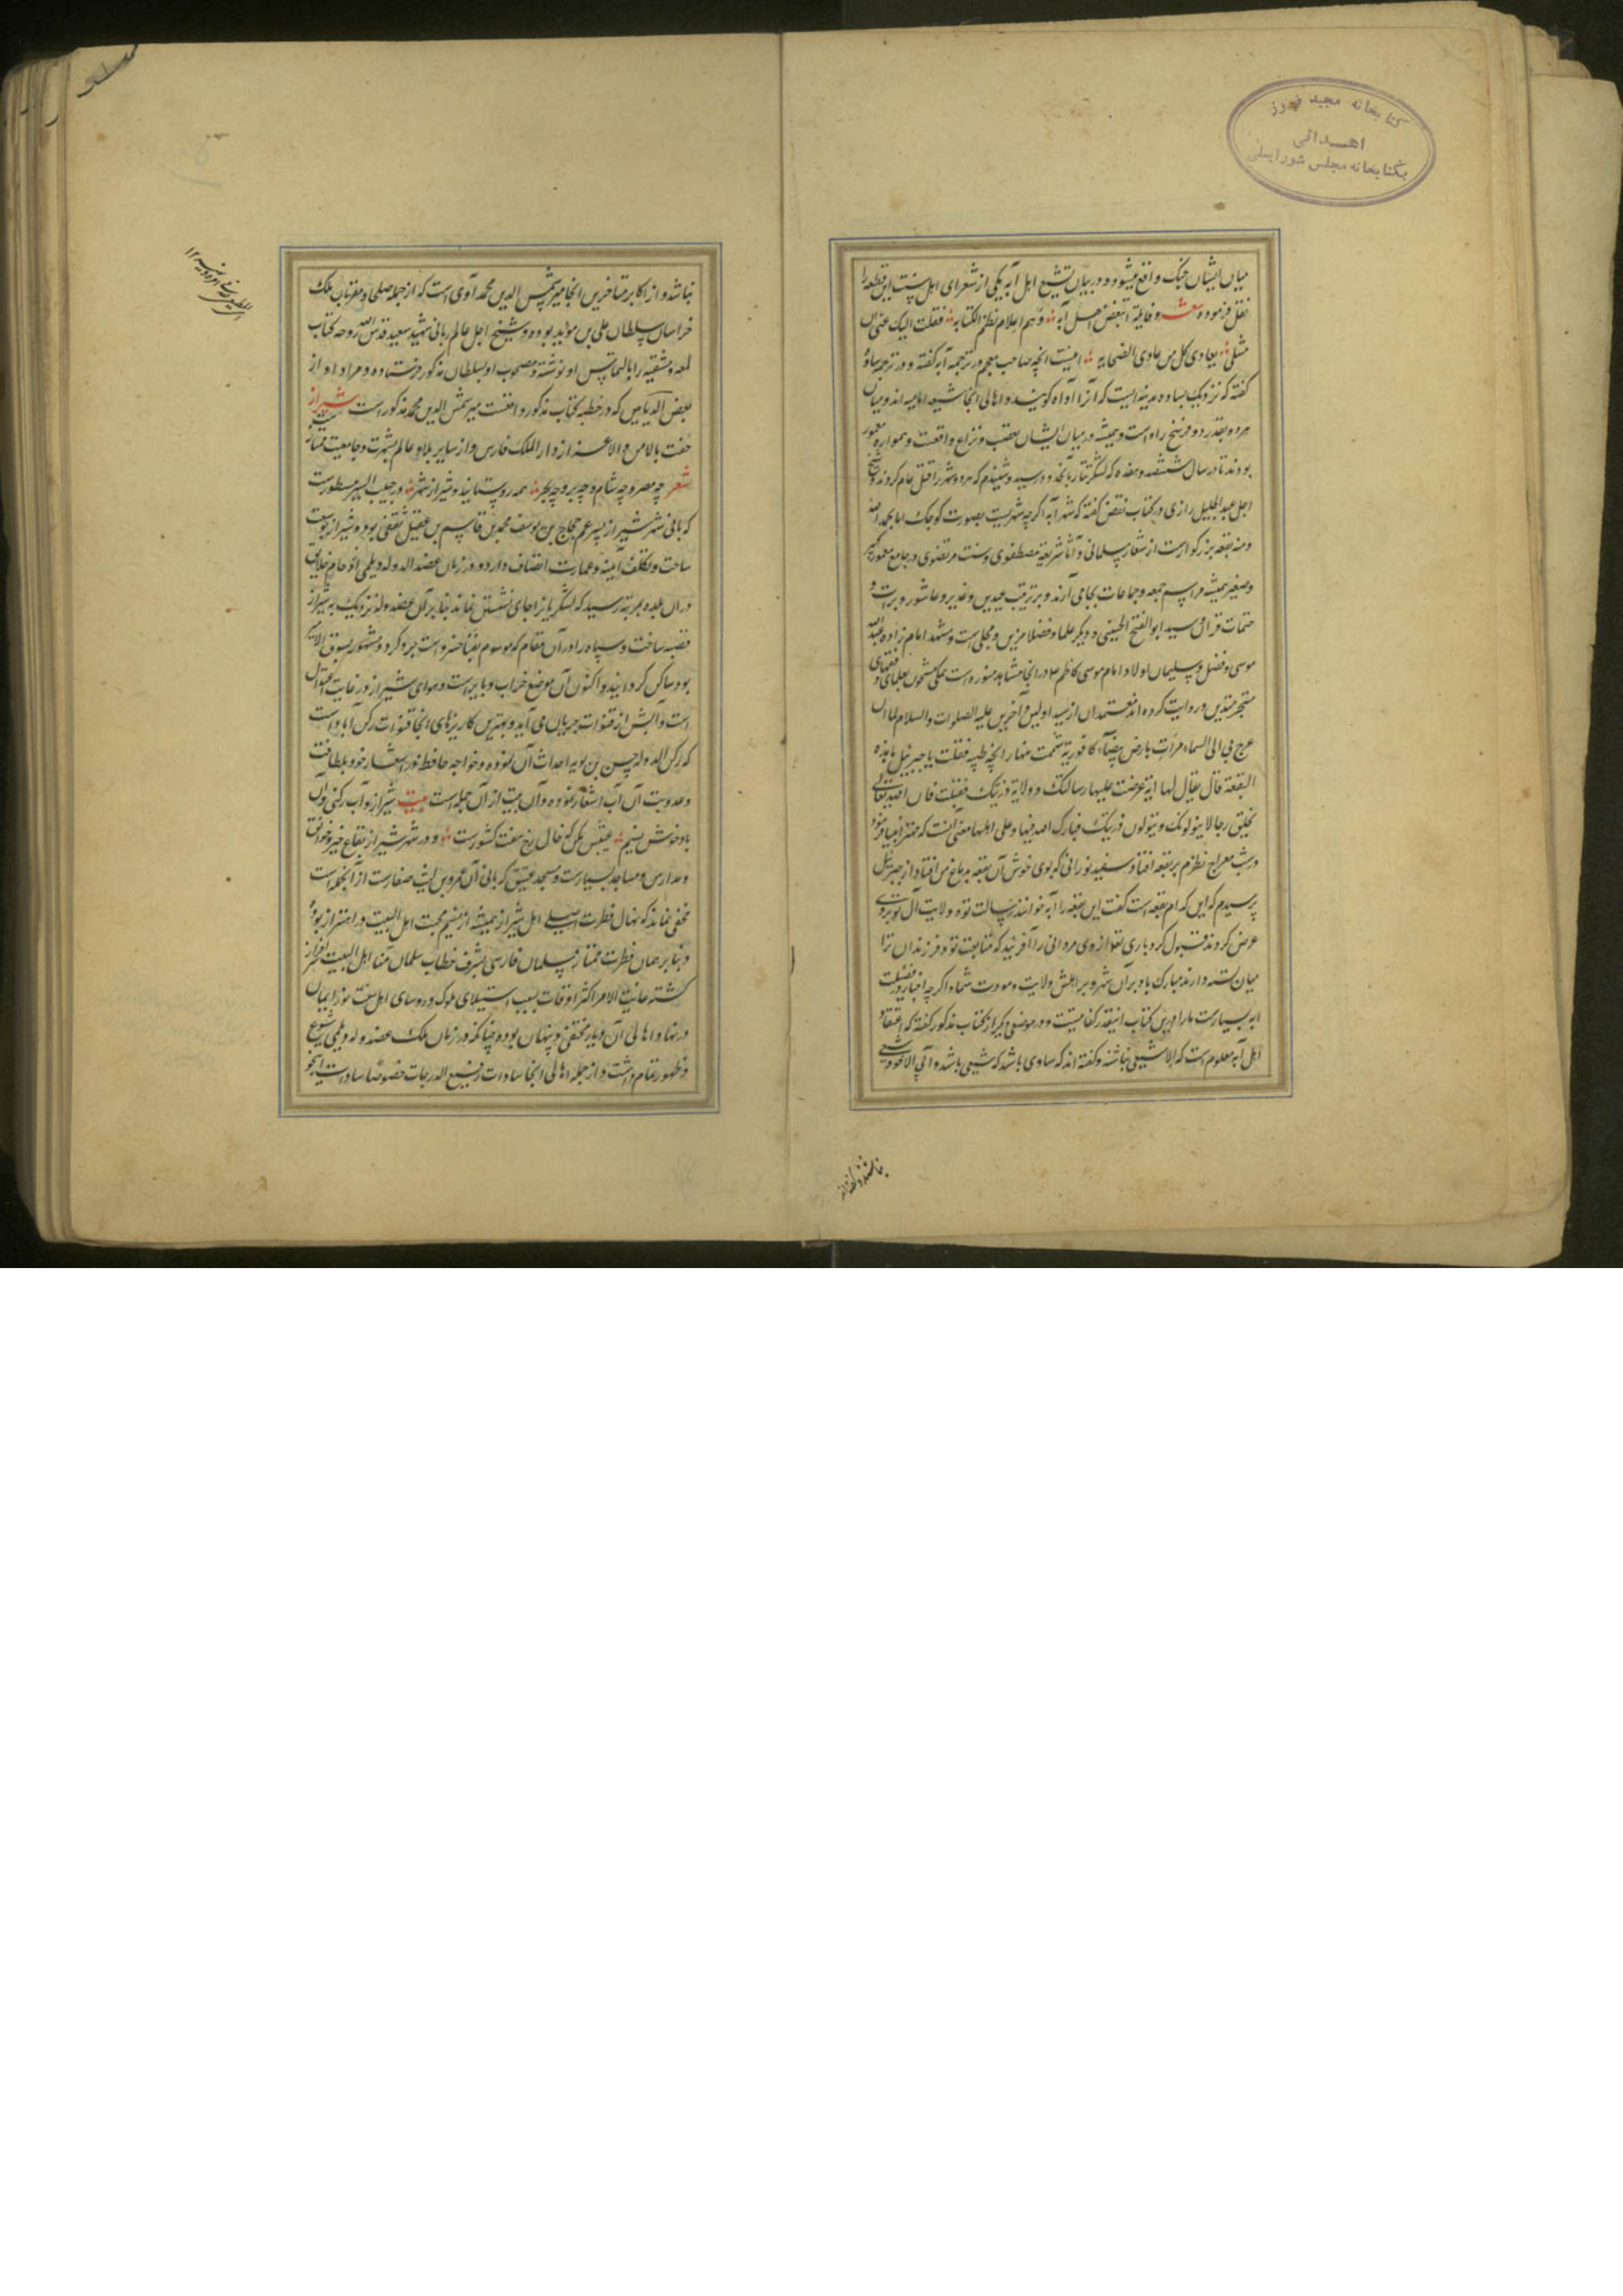 کتابخانه مجید فیروز
اهدائی
بکتابخانه مجلس شورایملی
میان ایشان جنک واقع میشود و در بیان تشیع اهل آبه یکی از شعرای اهل سنت این قطعه را
نقل فرموده شعر وقایلة اتبغض اهل آبه وهم اعلام نظم الکتابه فقلت الیک عنی ان
مثلی یعادی کل من عادی الصحابه اینست انچه صاحب معجم در ترجمه آبه کفته و در ترجمه ساوه
کفته که نزدیک بساوه مدینه ایست که آنرا آوه کویند و اهالی انجا شیعه امامیه اند و میان
هر دو بقدر دو فرسخ راه است و همیشه در میان ایشان تعصب و نزاع واقعست و همواره معمور
بودند تا در سال ششصد و هفده که لشکر تتار بانجا رسید و شنیدم که هر دو شهر را قتل عام کردند و شیخ
اجل عبد الجلیل رازی در کتاب نقض کفته که شهر آبه اکرچه شهریست بصورت کوچک اما بحمد الله
ومنه بقعه بزرکوارست از شعار مسلمانی و آثار شریعة مصطفوی و سنت مرتضوی در جامع معمور کبیر
وصغیر همیشه مراسم جمعه و جماعات بجا می آرند و بر ترتیب عیدین و غدیر و عاشور و برات و
ختمات قران و سید ابو الفتح الحسینی و دیکر علما و فضلا مزین و محلی است و مشهد امام زاده عبد الله
موسی و فضل و سلیمان اولاد امام موسی کاظم در انجا مشاهد منوره است مملی مشحون بعلمای و فقهای
متبحر متدین و روایت کرده اند معتمدان از سید اولین و آخرین علیه الصلوات والسلام لما ان
عرج بی الی السماء مرات بارض بیضاء کافوریة شممت منها رایحة طیبه فقلت یا جبرئیل ما هذه
البقعة قال یقال لها ابة عرضت علیها رسالتک وولایة ذریتک فقبلت فان الله تعالی
یخلق رجالا یتولونک ویتولون ذریتک فبارک الله فیها وعلی اهلها معنی انست که مهتر انبیا فرمود
در شب معراج نظرم بر بقعه افتاد سفید نورانی که بوی خوش آن بقعه بدماغ من افتاد از جبرئیل
پرسیدم که این کدام بقعه است کفت این بقعه را آبه خوانند رسالت تو و ولایت آل تو بروی
عرض کردند قبول کرد باری تعالی از وی مردانی را آفریند که متابعت تو و فرزندان ترا
میان بسته دارند مبارک باد بر آن شهر و بر اهلش ولایت و مودت شما و اکرچه اخبار در فضیلت
ابه بسیارست ما را درین کتاب اینقدر کفایتست و در موضعی دیکر از کتاب مذکور کفته که اعتقاد
اهل آبه معلوم است که الا شیعی نباشند و کفته اند که ساوی باشد که شیعی باشد و آبی الا خود شیعی
نباشند و کفته اند
نباشد و از اکابر متاخرین انجا میر شمس الدین محمد آوی است که از جمله صلحا و مقربان ملک
خراسان سلطان علی بن مؤید بوده و شیخ اجل عالم ربانی شهید سعید قدس الله روحه کتاب
لمعه دمشقیه را بالتماس او نوشته و مصحوب او بسلطان مذکور فرستاده و مراد او از
بعض الدیانین که در خطبه کتاب مذکور واقعست میر شمس الدین محمد مذکور است شیراز
حفت بالامن والاعزاز دار الملک فارس و از سایر بلاد عالم بشهرت و جامعیت ممتاز
شعر چه مصر و چه شام و چه بر و چه بحر همه روستایند و شیراز شهر در حبیب السیر مسطورست
که بانی شهر شیراز پسر عم حجاج بن یوسف محمد بن قاسم بن عقیل ثقفی بوده و شیراز بوسعت
ساحت و تکلف ابنیه و عمارت اتصاف دارد و در زمان عضد الدوله دیلمی ازدحام خلایق
دران بلده بمرتبه رسید که لشکریانرا جای نشستن نماند بنابر آن عضد الدوله نزدیک بشیراز
قصبه ساخت و سپاه را در آن مقام که موسوم بفنا خسرو است جرد کرد و مشهور بسوق الامیر
بود ساکن کردانید و اکنون آن موضع خراب و بایر است و هوای شیراز در غایت اعتدال
است و آبش از قنوات جریان می آید و بهترین کاریزهای انجا قنوات رکن آباد است
که رکن الدوله حسن بن بویه احداث آن نموده و خواجه حافظ در اشعار خود بلطافت
وعذوبت آن آب اشعار نموده و آن بیت از آن جمله است بیت شیراز و آب رکنی و آن
باد خوش نسیم عیبش مکن که خال رخ هفت کشورست و در شهر شیراز بقاع خیر و خوانق
ومدارس و مساجد بسیارست و مسجد عتیق که بانی آن عمرو بن لیث صفارست از آنجمله است
مخفی نماند که نهال فطرت اصلی اهل شیراز همیشه از نسیم محبت اهل البیت در اهتزاز بوده
و بنابر همان فطرت ممتاز سلمان فارسی بشرف خطاب سلمان منا اهل البیت سرافراز
کشته غایت الامر اکثر اوقات بسبب استیلای ملوک و روسای اهل سنت نور ایمان
در نهاد اهالی آن دیار مختفی و پنهان بوده چنانکه در زمان ملک عضد الدوله دیلمی شیوع
وظهور تمام داشت و از جمله اهالی انجا سادات رفیع الدرجات خصوصا سادات انجو